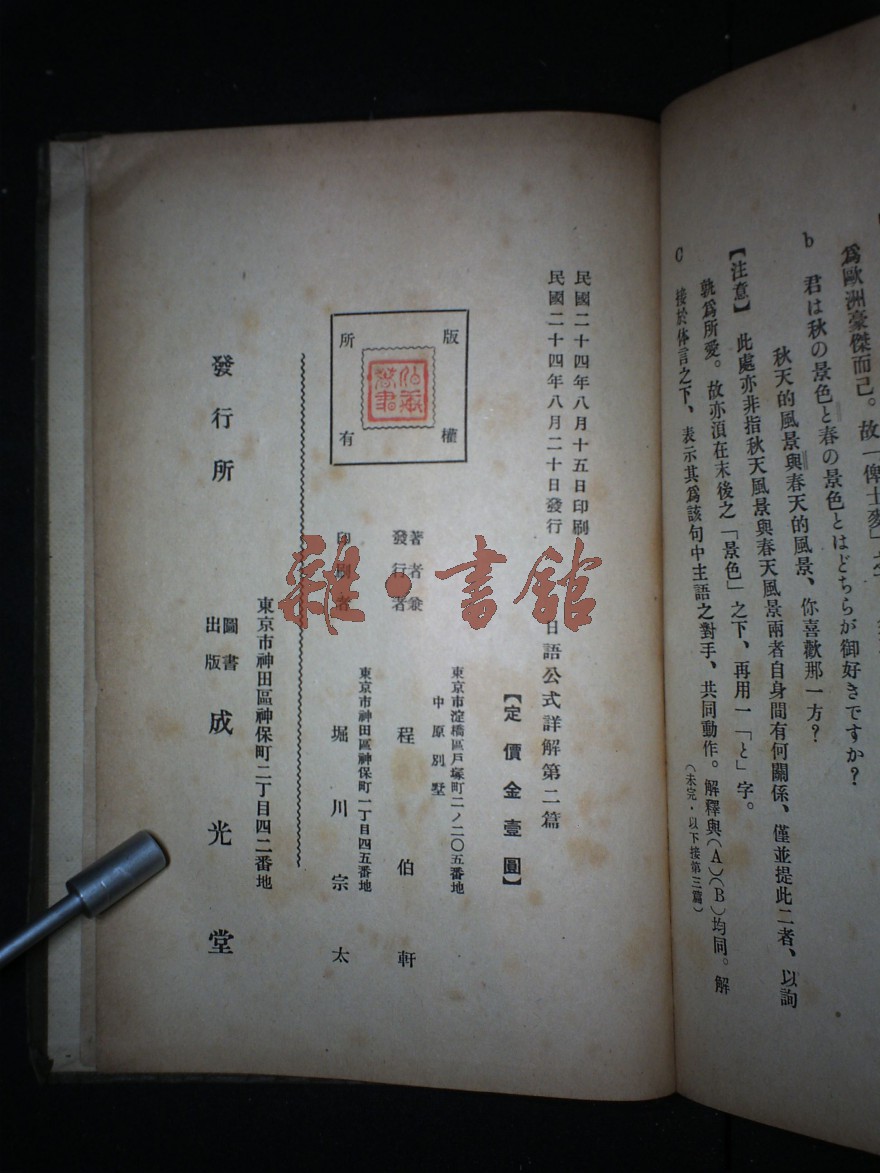 爲歐洲豪傑而己。故「俾士麥」之
b 君は秋の景色と春の景色とはどちらが御好きですか?
秋天的風景與春天的風景、你喜歡那一方?
【注意】 此處亦非指秋天風景與春天風景兩者自身間有何關係、僅並提此二者、以詢
孰爲所愛。故亦須在末後之「景色」之下、再用一「と」字。
C 接於体言之下、表示其爲該句中主語之對手、共同動作。解釋與(A)(B)均同。解
(未完・以下接第三篇)
民國二十四年八月十五日印刷
民國二十四年八月二十日發行
日語公式詳解第二篇
【定價金壹圓】
版權所有
著者兼發行者
東京市淀橋區戸塚町二ノ二〇五番地
中原別墅
程伯軒
印刷者
東京市神田區神保町一丁目四五番地
堀川宗太
發行所
東京市神田區神保町二丁目四二番地
圖書出版 成光堂
雜・書館